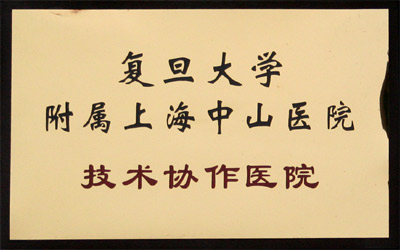 复旦大学
附属上海中山医院
技术协作医院